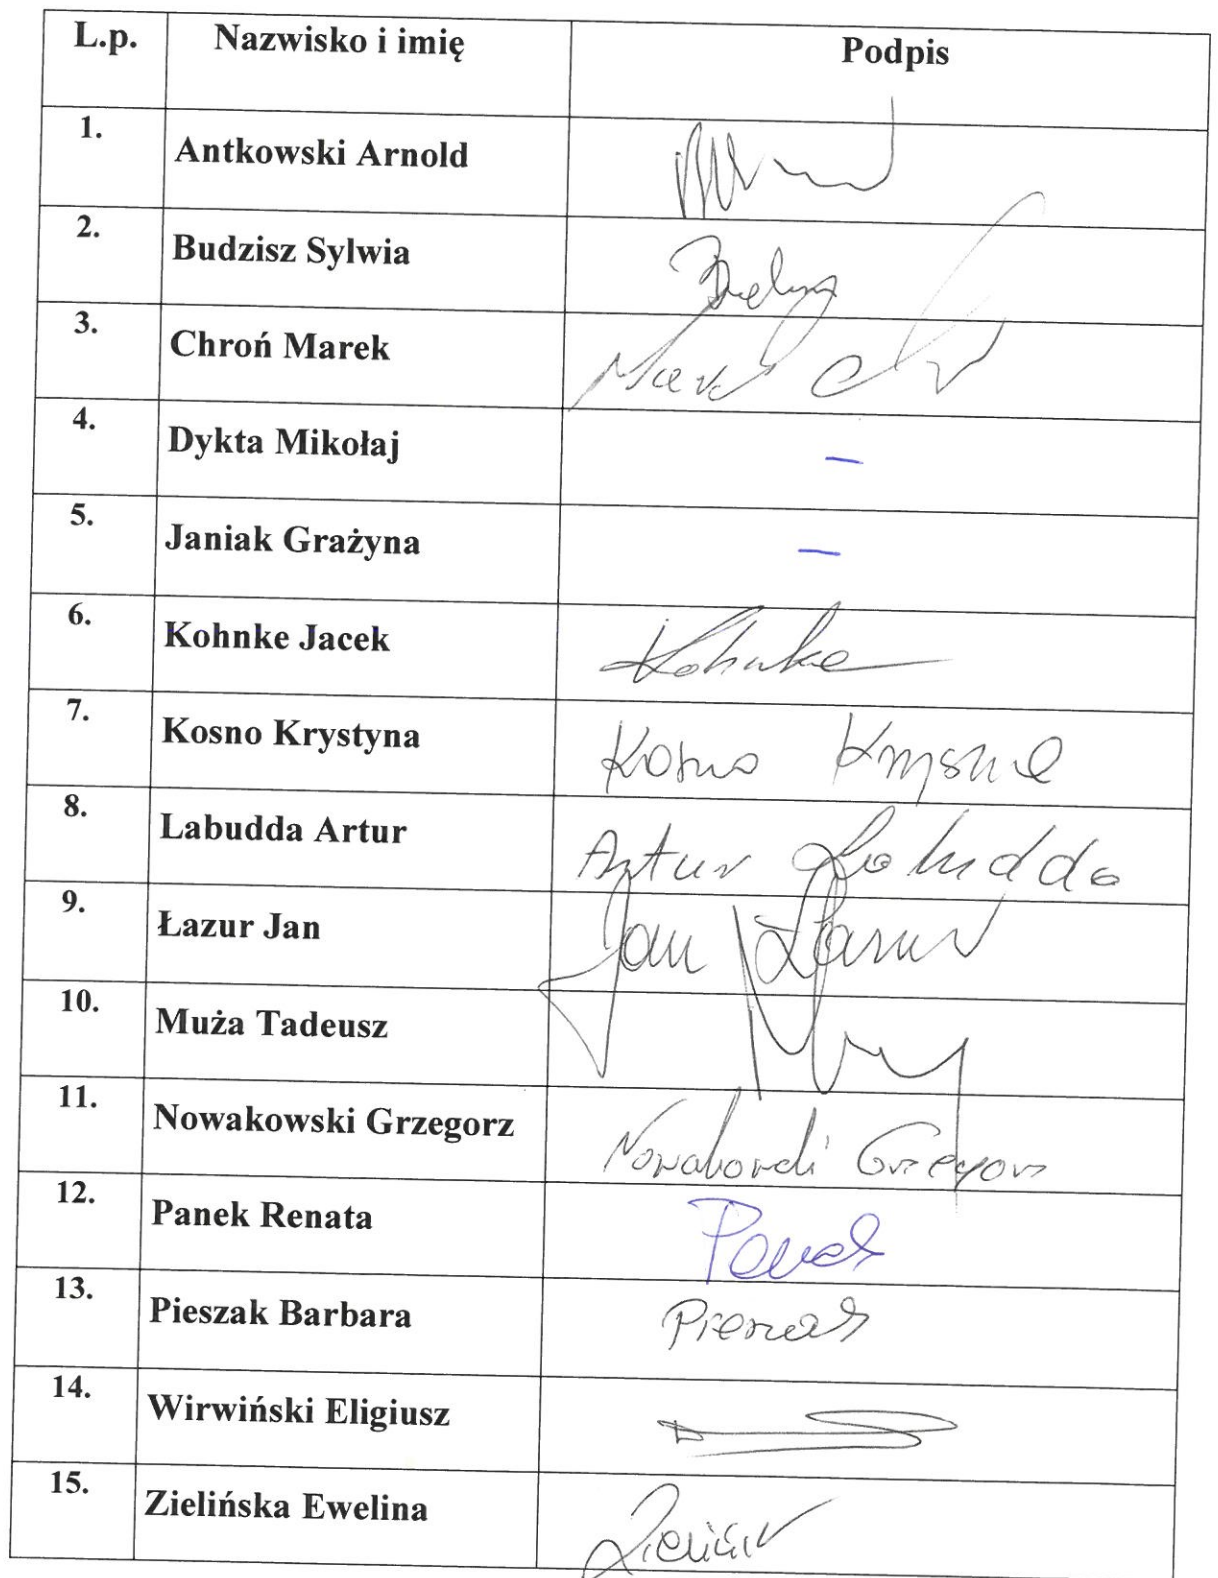 L.p. Nazwisko i imię Podpis
1. Antkowski Arnold
2. Budzisz Sylwia
3. Chroń Marek Marek
4. Dykta Mikołaj –
5. Janiak Grażyna –
6. Kohnke Jacek Kohnke
7. Kosno Krystyna Kosno Krystyna
8. Labudda Artur Artur Labudda
9. Łazur Jan Jan Łazur
10. Muża Tadeusz
11. Nowakowski Grzegorz Nowakowski Grzegorz
12. Panek Renata Panek
13. Pieszak Barbara Pieszak
14. Wirwiński Eligiusz
15. Zielińska Ewelina